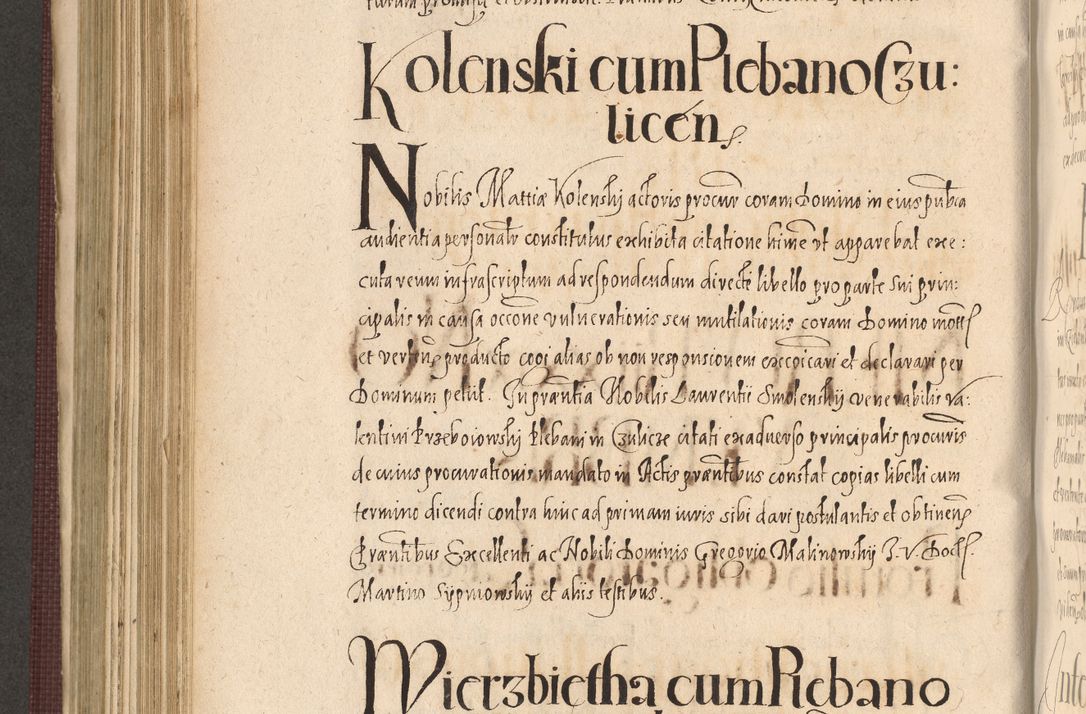 Kolenski cum Plebano Czu:
licen.
Nobilis Mattiæ Kolenskj actoris procur coram Domino in eius publca
audientia personalr constitutus exhibita citatione hinc vt apparebat exe:
cuta reum infrascriptum ad respondendum directe libello pro parte sui prin:
cipalis in causa occone vulnerationis seu mutilationis coram Domino mott.
et vertens producto cogi alias ob non responsionem excoicari et declarari per
Dominum petiit. In præntia Nobilis Laurentii Smolenskÿ venerabilis Va:
lentini Przeboiowskj Plebani in Czulicze citati ex aduerso principalis procuris
de cuius procurationis mandato in Actis præntibus constat copias libelli cum
termino dicendi contra hinc ad primam iuris sibi dari postulantis et obtinen.
Præntibus Excellenti ac Nobili Dominis Gregorio Malinowskÿ I. V. Doct.
Martino Sypniowskÿ et aliis testibus.
Wierzbietha cum Plebano